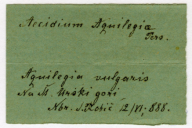 Aecidium Aquilegia
Pers.
Aquilegia vulgaris
Na M. Urški gori
Nbr. S. Robič 12/VI, 888.